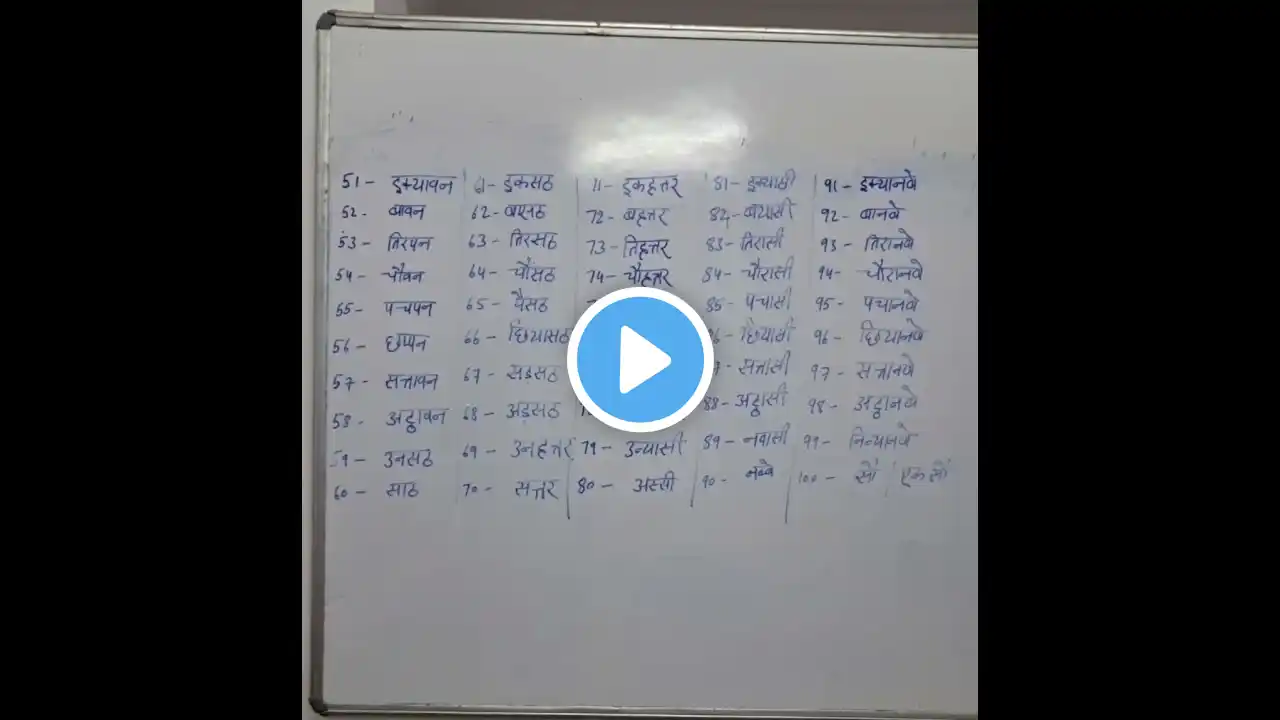 51 - इक्यावन 61 - इकसठ 71 - इकहत्तर 81 - इक्यासी 91 - इक्यानवे
52 - बावन 62 - बासठ 72 - बहत्तर 82 - बयासी 92 - बानवे
53 - तिरपन 63 - तिरसठ 73 - तिहत्तर 83 - तिरासी 93 - तिरानवे
54 - चौवन 64 - चौंसठ 74 - चौहत्तर 84 - चौरासी 94 - चौरानवे
55 - पचपन 65 - पैसठ 85 - पचासी 95 - पचानवे
56 - छप्पन 66 - छियासठ छियासी 96 - छियानवे
57 - सत्तावन 67 - सड़सठ सत्तासी 97 - सत्तानवे
58 - अट्ठावन 68 - अड़सठ 88 - अट्ठासी 98 - अट्ठानवे
59 - उनसठ 69 - उनहत्तर 79 - उन्यासी 89 - नवासी 99 - निन्यानवे
60 - साठ 70 - सत्तर 80 - अस्सी 90 - नब्बे 100 - सौ / एक सौ